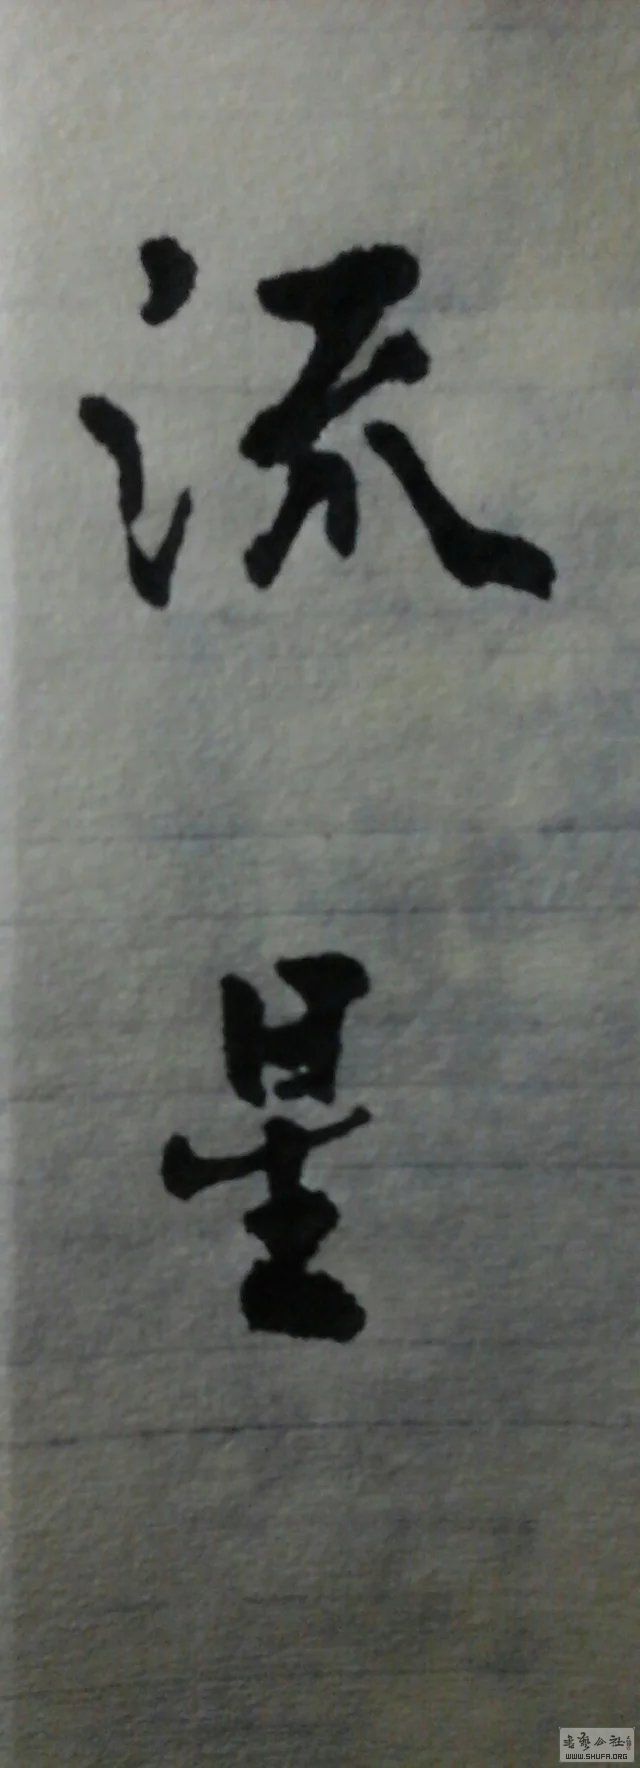 流星
书艺公社
WWW.SHUFA.ORG